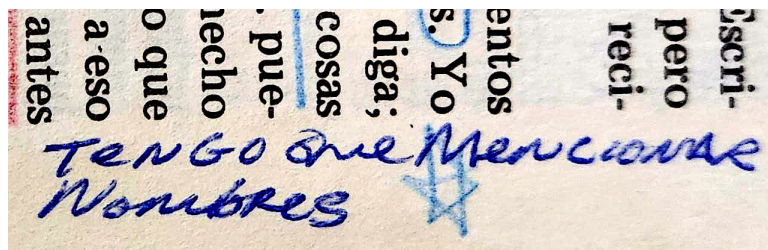 Escri-
pero
reci-
entos
s. Yo
diga;
cosas
. pue-
hecho
o que
a eso
antes
TENGO QUE MENCIONAR
NOMBRES